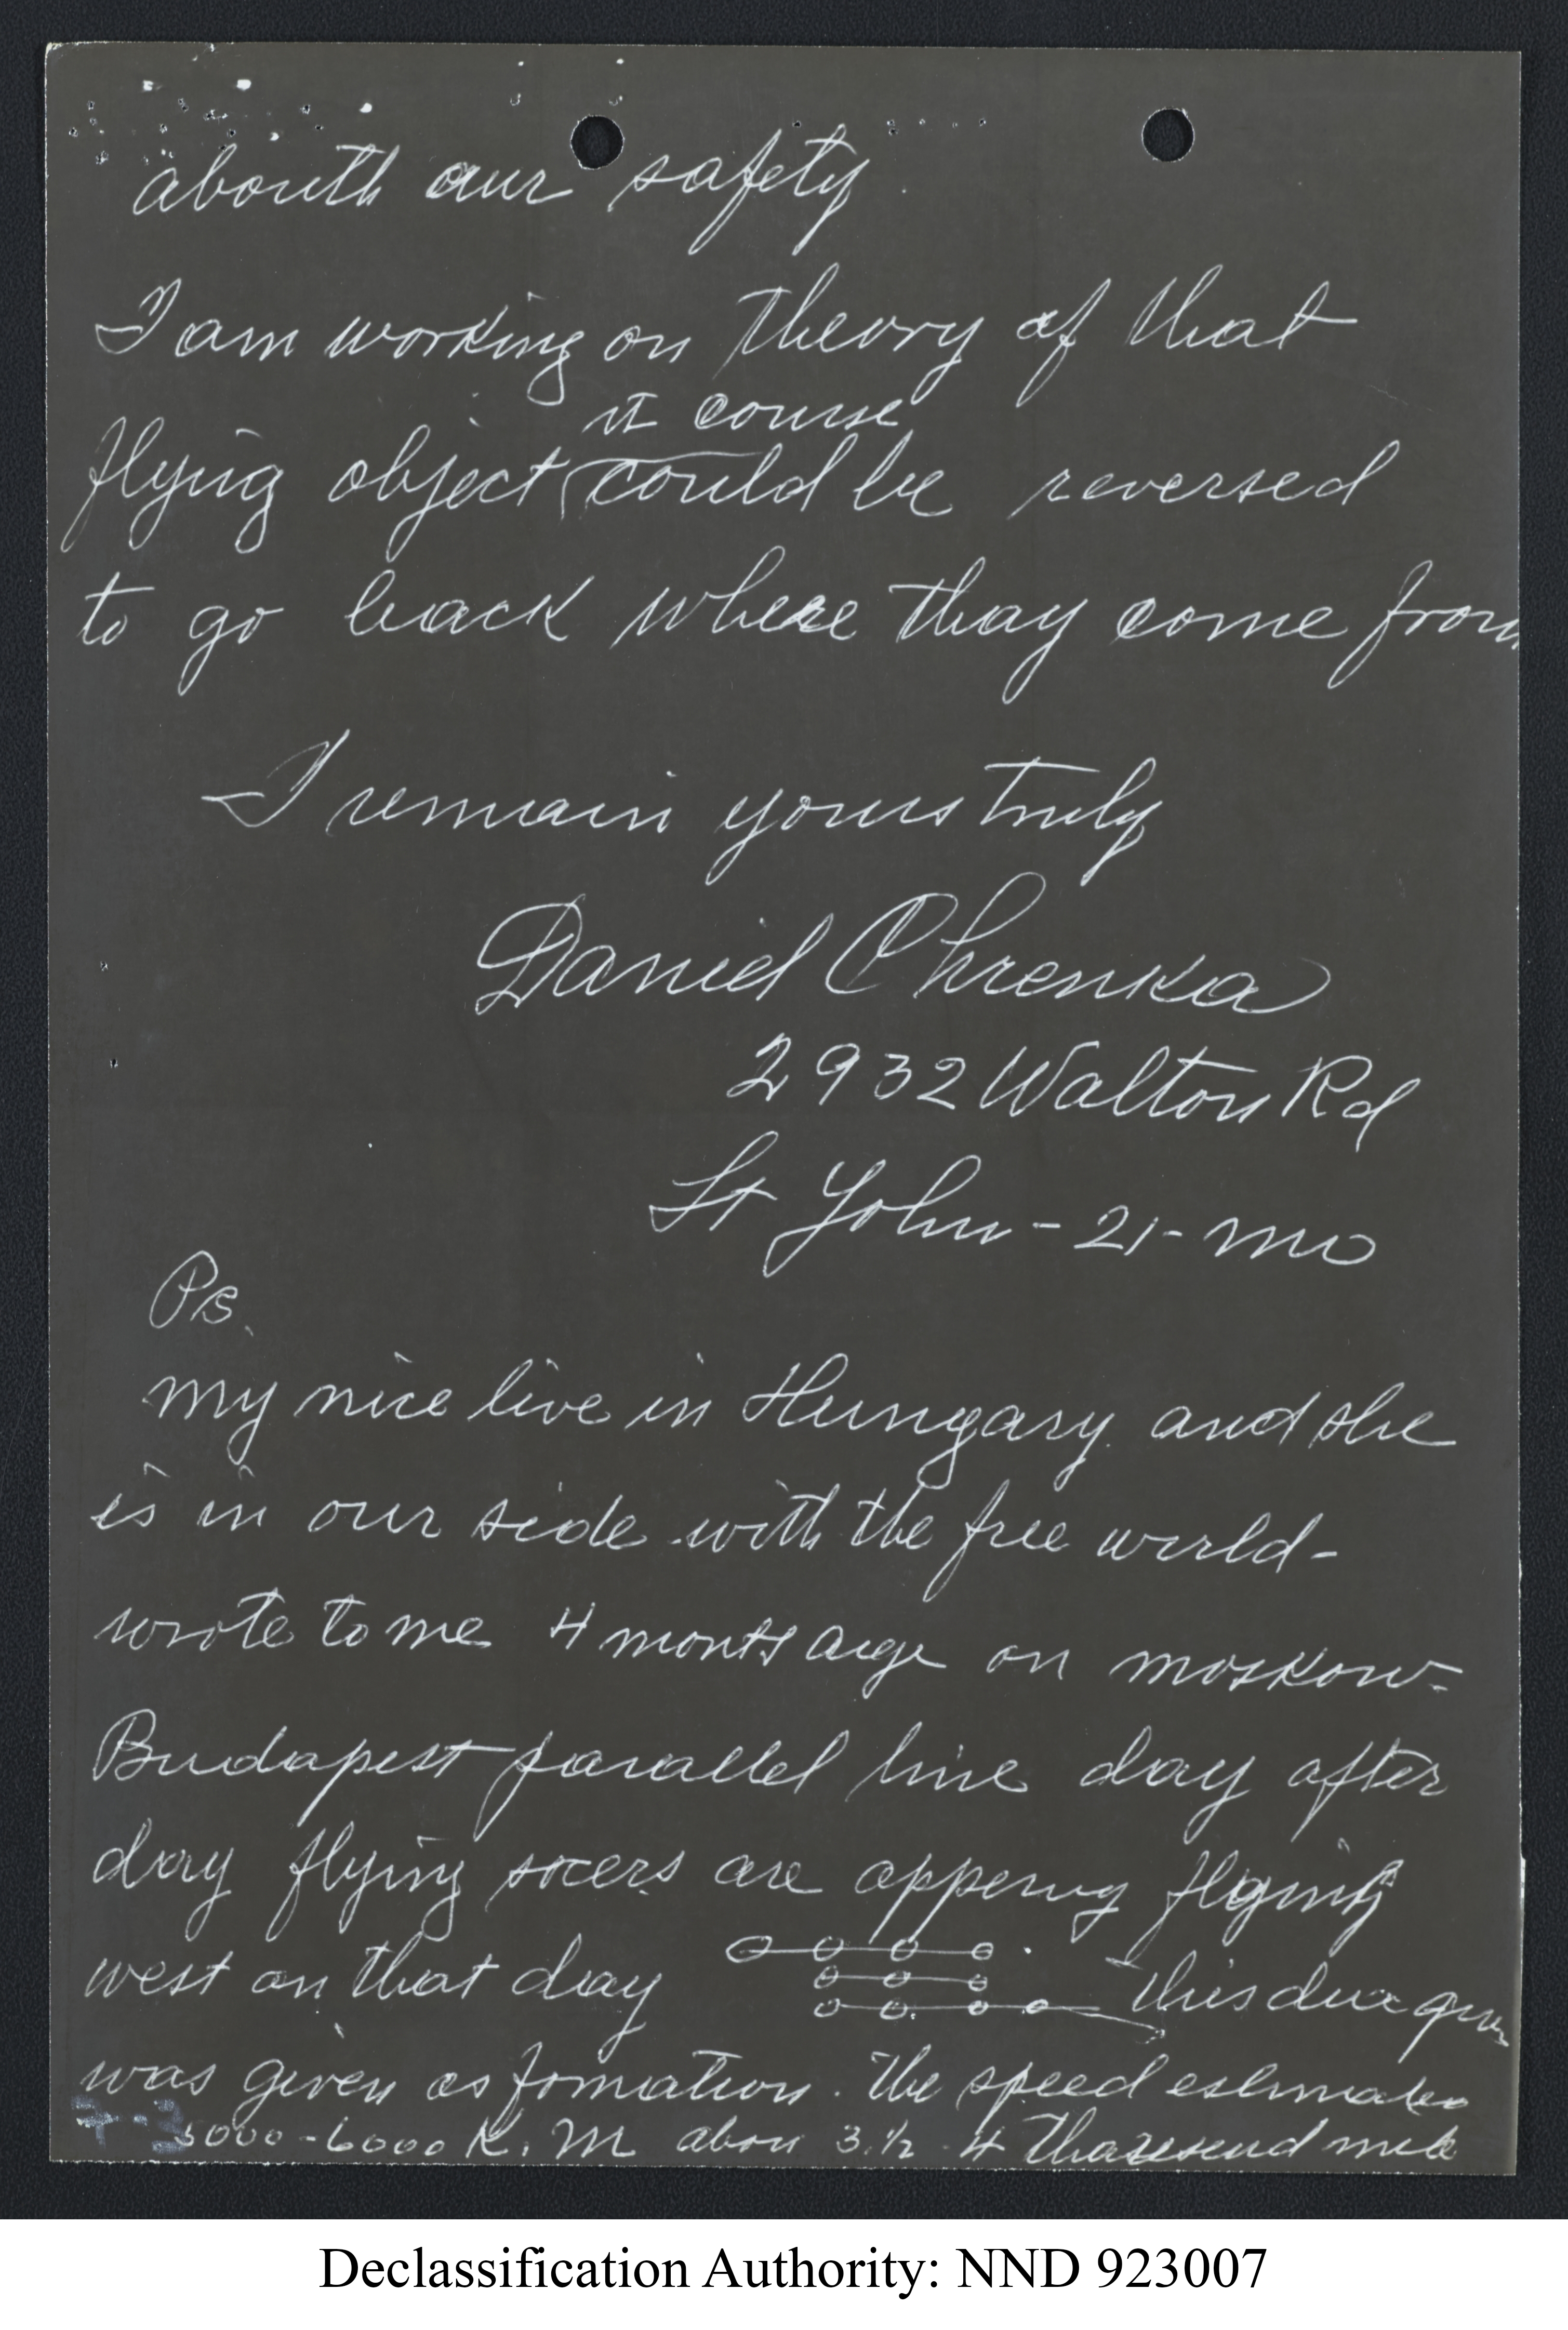 abouth our safety.
I am working on theory of that
it course
flying object could be reversed
to go back where thay come from
I remain yours truly
Daniel Ohrenka
2932 Walton Rd
St John - 21 - Mo
Ps.
my nice live in Hungary. and she
is in our side with the free world -
wrote to me 4 months on moskow-
Budapest parallel line day after
day flying socers are appering flying
west on that day this
was given as formation. The speed estimated
5000 - 6000 K. M 3 1/2 - 4 mile
Declassification Authority: NND 923007